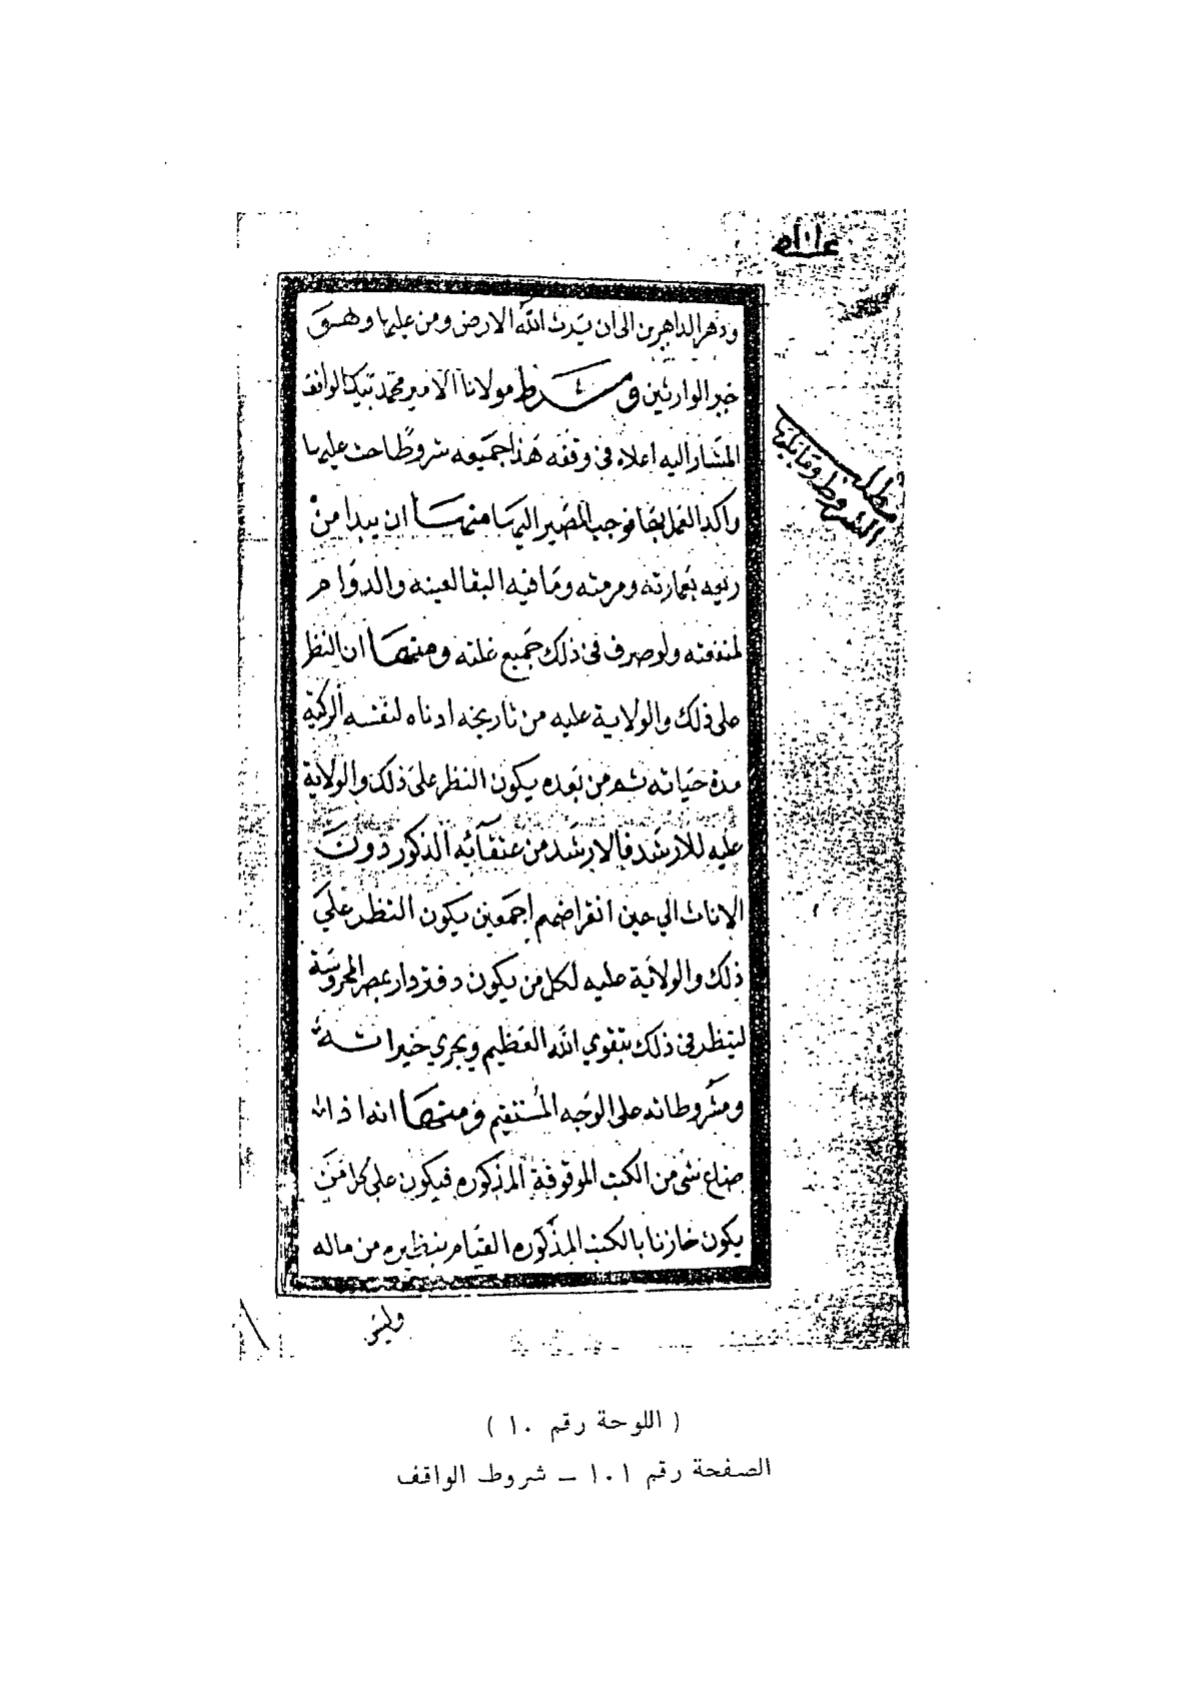 ودهر الداهرين الى ان يرث الله الارض ومن عليها وهو
خير الوارثين وشرط مولانا الامير محمد بيك الواقف
المشار اليه اعلاه في وقفه هذا جميعه شروطا حث عليها
واكد العمل بها فوجب المصير اليها منها ان يبدا من
ريعه بعمارته ومرمته وما فيه البقا لعينه والدوام
لمنفعته ولو صرف في ذلك جميع غلته ومنها ان النظر
على ذلك والولاية عليه من تاريخه ادناه لنفسه الزكية
مدة حياته ثم من بعده يكون النظر على ذلك والولاية
عليه للارشد فالارشد من عتقائه الذكور دون
الاناث الي حين انقراضهم اجمعين يكون النظر علي
ذلك والولاية عليه لكل من يكون دفتردار بمصر المحروسة
لينظر في ذلك بتقوي الله العظيم ويجري خيراته
ومشروطاته على الوجه المستقيم ومنها انه اذا
ضاع شى من الكتب الموقوفة المذكوره فيكون على كل من
يكون خازنا بالكتب المذكوره القيام بنظيره من ماله
مطلب
الشروط
( اللوحة رقم ١٠ )
الصفحة رقم ١٠١ – شروط الواقف